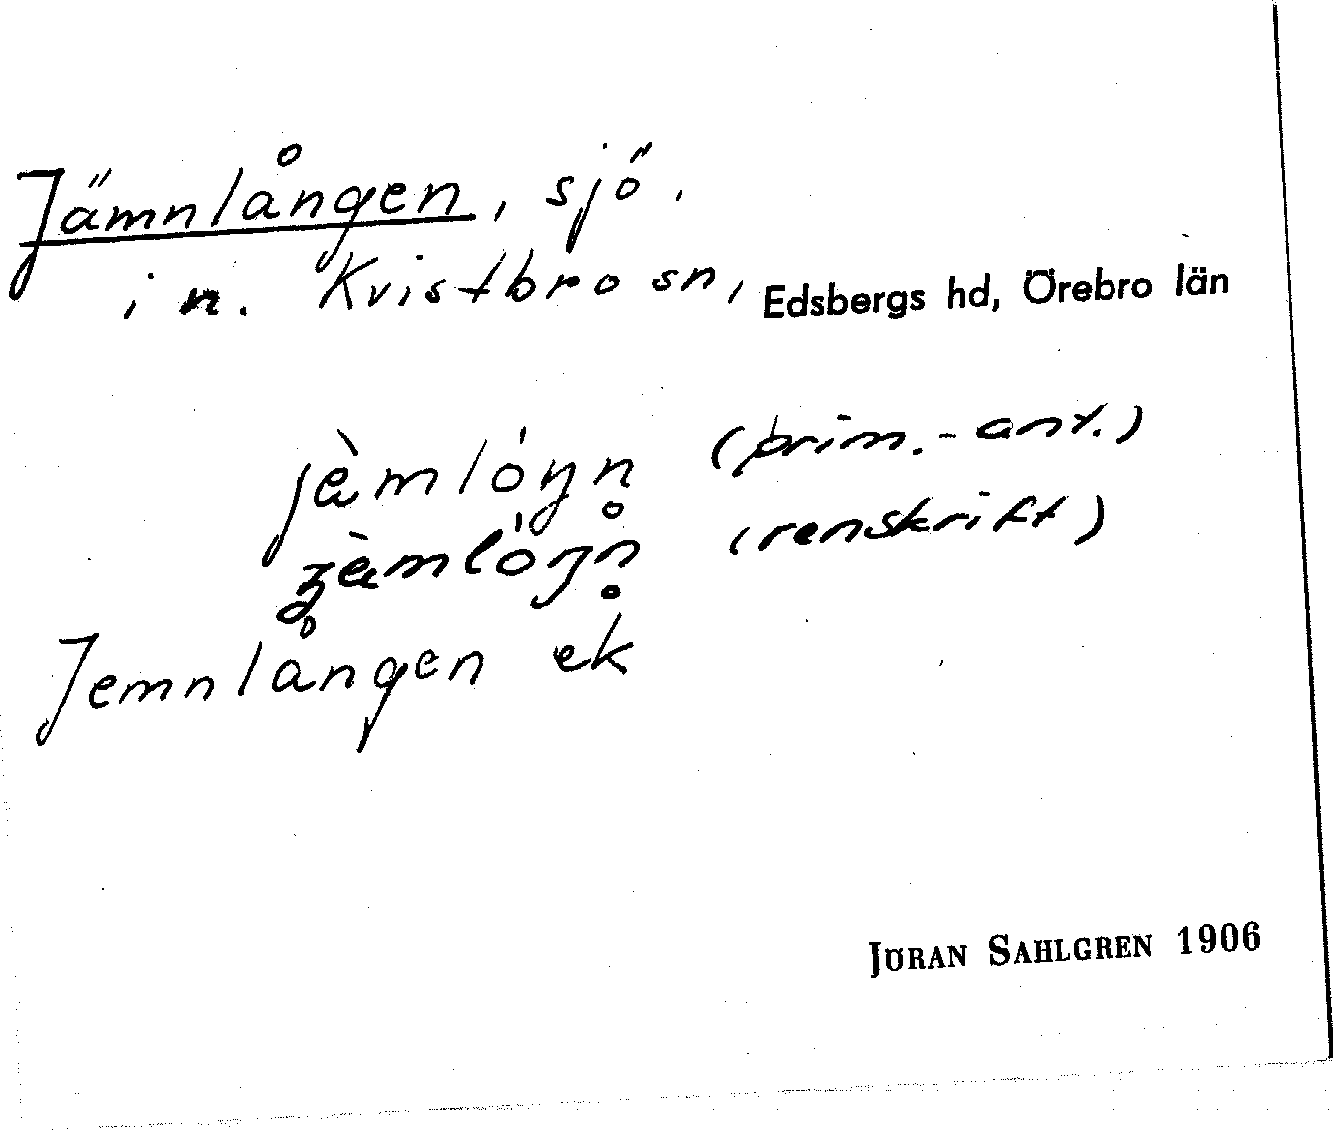 Jämnlången, sjö.
i n. Kvistbro sn, Edsbergs hd, Örebro län
jæ̀mlóŋn̥ (prim.-ant.)
ʒæ̀mlóŋn̥ (renskrift)
Jemnlången ek
JÖRAN SAHLGREN 1906